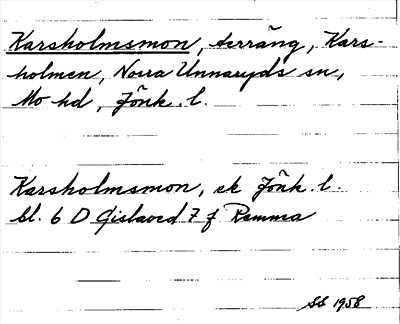 Karsholmsmon, terräng, Kars-
holmen, Norra Unnaryds sn,
Mo hd, Jönk. l.
Karsholmsmon, ek Jönk. l.
bl. 6 D Gislaved 7 f Ramma
SS 1958